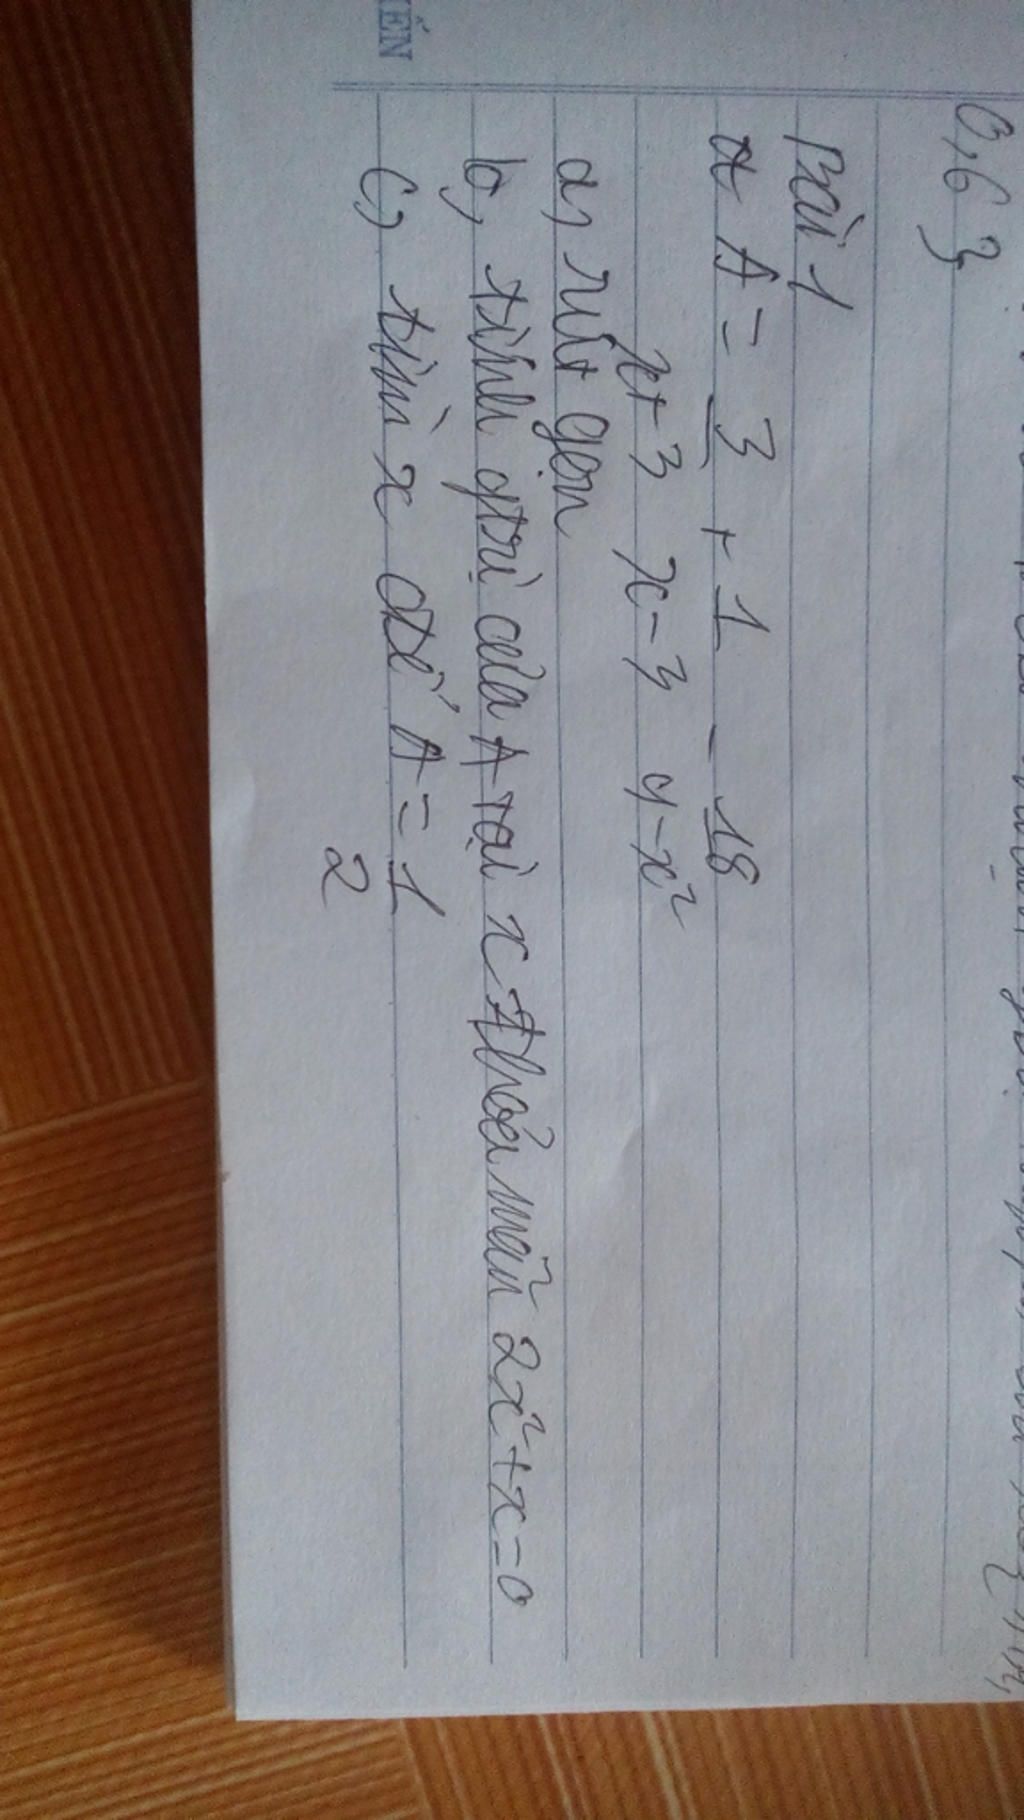 ẾN
0,6 3
Bài 1
a A = 3 + 1 - 18
x+3 x-3 9-x²
a, rút gọn
b, tính gtrị của A tại x thoả mãn 2x²+x=0
c, tìm x để A = 1
2